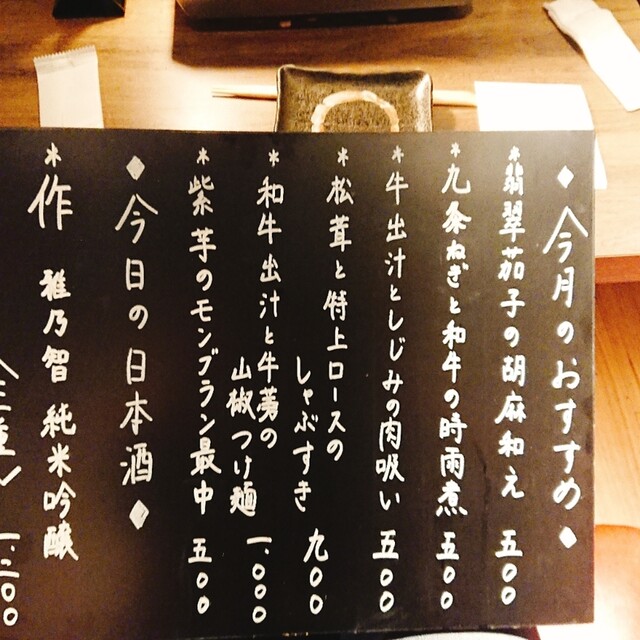 ◆今月のおすすめ◆
*翡翠茄子の胡麻和え 五〇〇
*九条ねぎと和牛の時雨煮 五〇〇
*牛出汁としじみの肉吸い 五〇〇
*松茸と特上ロースの
しゃぶすき 九〇〇
*和牛出汁と牛蒡の
山椒つけ麺 一、〇〇〇
*紫芋のモンブラン最中 五〇〇
◆今日の日本酒◆
*作 雅乃智 純米吟醸
一、二〇〇